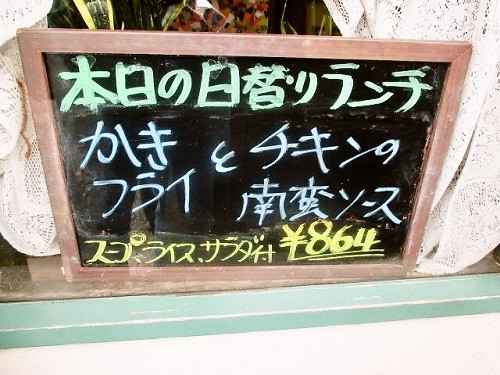 本日の日替りランチ
かきフライ と チキンの南蛮ソース
スープ、ライス、サラダ付 ¥864